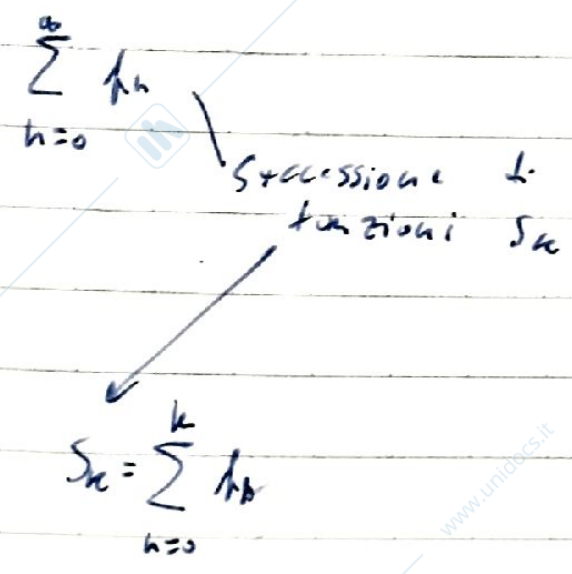 ∞
∑ fn
n=0
Successione di
funzioni Sk
k
Sk = ∑ fn
n=0
www.unidocs.it